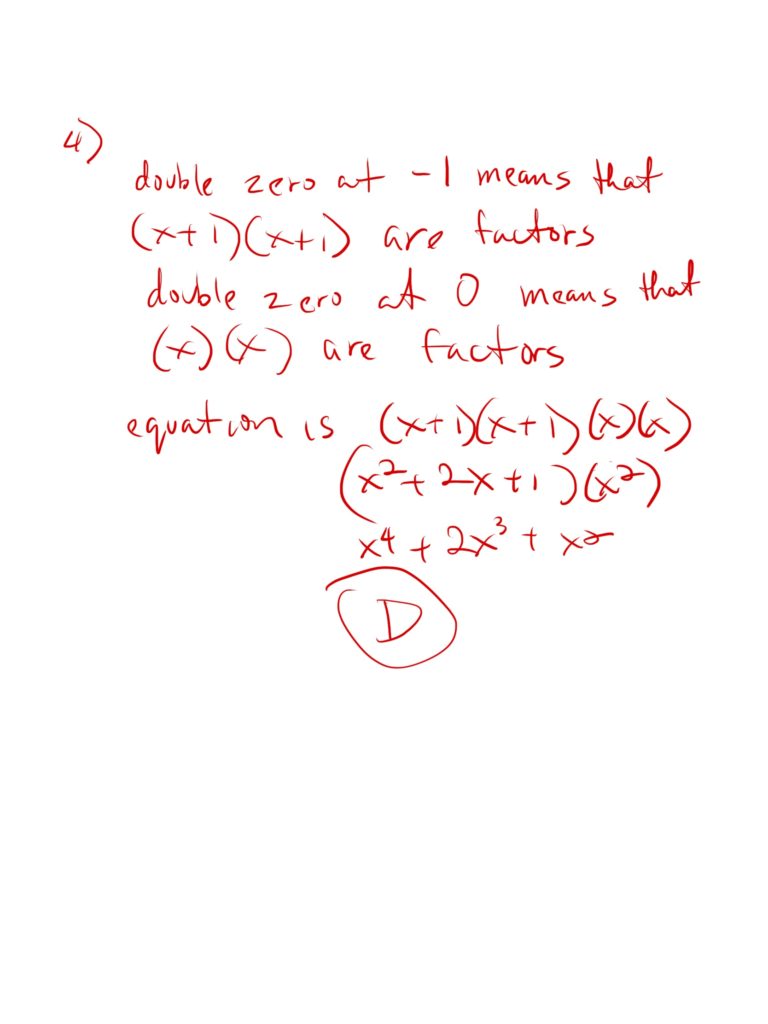 4)
double zero at -1 means that
(x+1)(x+1) are factors
double zero at 0 means that
(x)(x) are factors
equation is (x+1)(x+1)(x)(x)
(x²+2x+1)(x²)
x⁴+2x³+x²
D